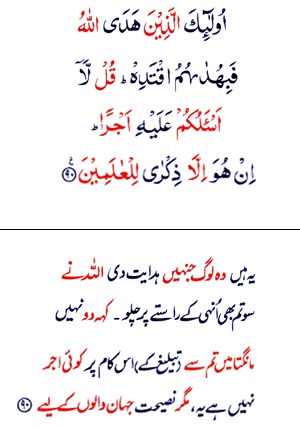 اُولٰٓئِكَ الَّذِيْنَ هَدَى اللّٰهُ
فَبِهُدٰىهُمُ اقْتَدِهْ ؕ قُلْ لَّاۤ
اَسْئَلُكُمْ عَلَيْهِ اَجْرًا ؕ
اِنْ هُوَ اِلَّا ذِكْرٰى لِلْعٰلَمِيْنَ ۹۰
یہ ہیں وہ لوگ جنہیں ہدایت دی اللہ نے
سو تم بھی اُنہی کے راستے پر چلو ۔ کہہ دو نہیں
مانگتا میں تم سے (تبلیغ کے) اس کام پر کوئی اجر
نہیں ہے یہ، مگر نصیحت جہان والوں کے لیے ۹۰